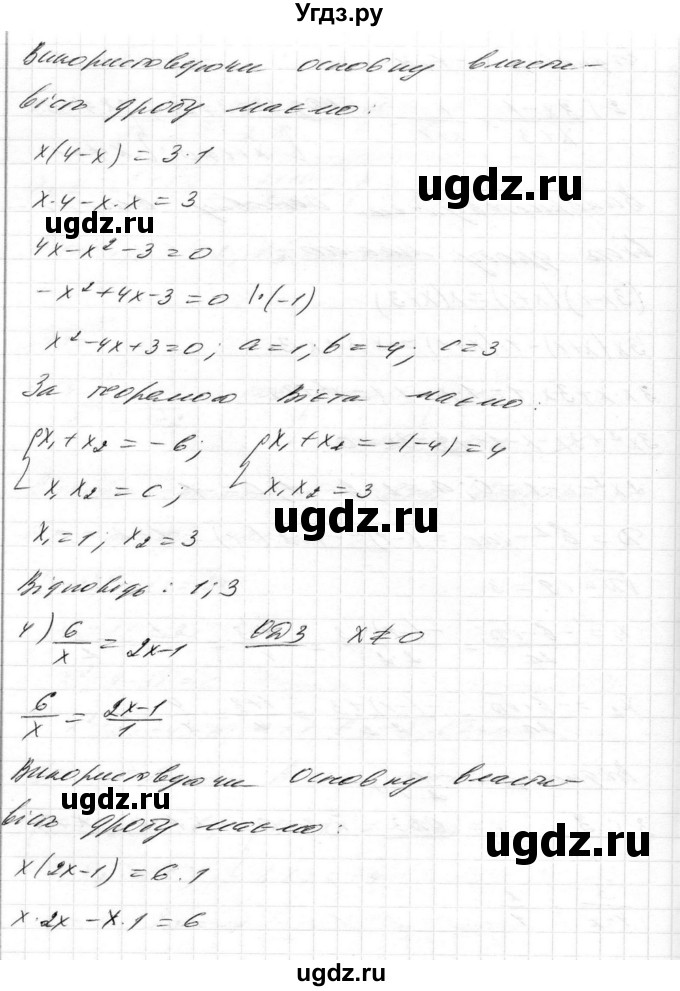 Угдз.ру
Використовуючи основну власти-
вість дробу маємо:
x(4-x) = 3·1
ugdz.ru
x·4-x·x = 3
ugdz.ru
4x-x²-3=0
-x²+4x-3=0 |·(-1)
x²-4x+3=0; a=1; b=-4; c=3
За теоремою Вієта маємо:
{x₁+x₂ = -b; {x₁+x₂ = -(-4) = 4
x₁x₂ = c; x₁x₂ = 3
ugdz.ru
x₁=1; x₂=3
Відповідь: 1; 3
4) 6/x = 2x-1 ОДЗ x≠0
6/x = 2x-1/1
Використовуючи основну власти-
ugdz.ru
вість дробу маємо:
ugdz.ru
x(2x-1) = 6·1
x·2x - x·1 = 6
ugdz.ru